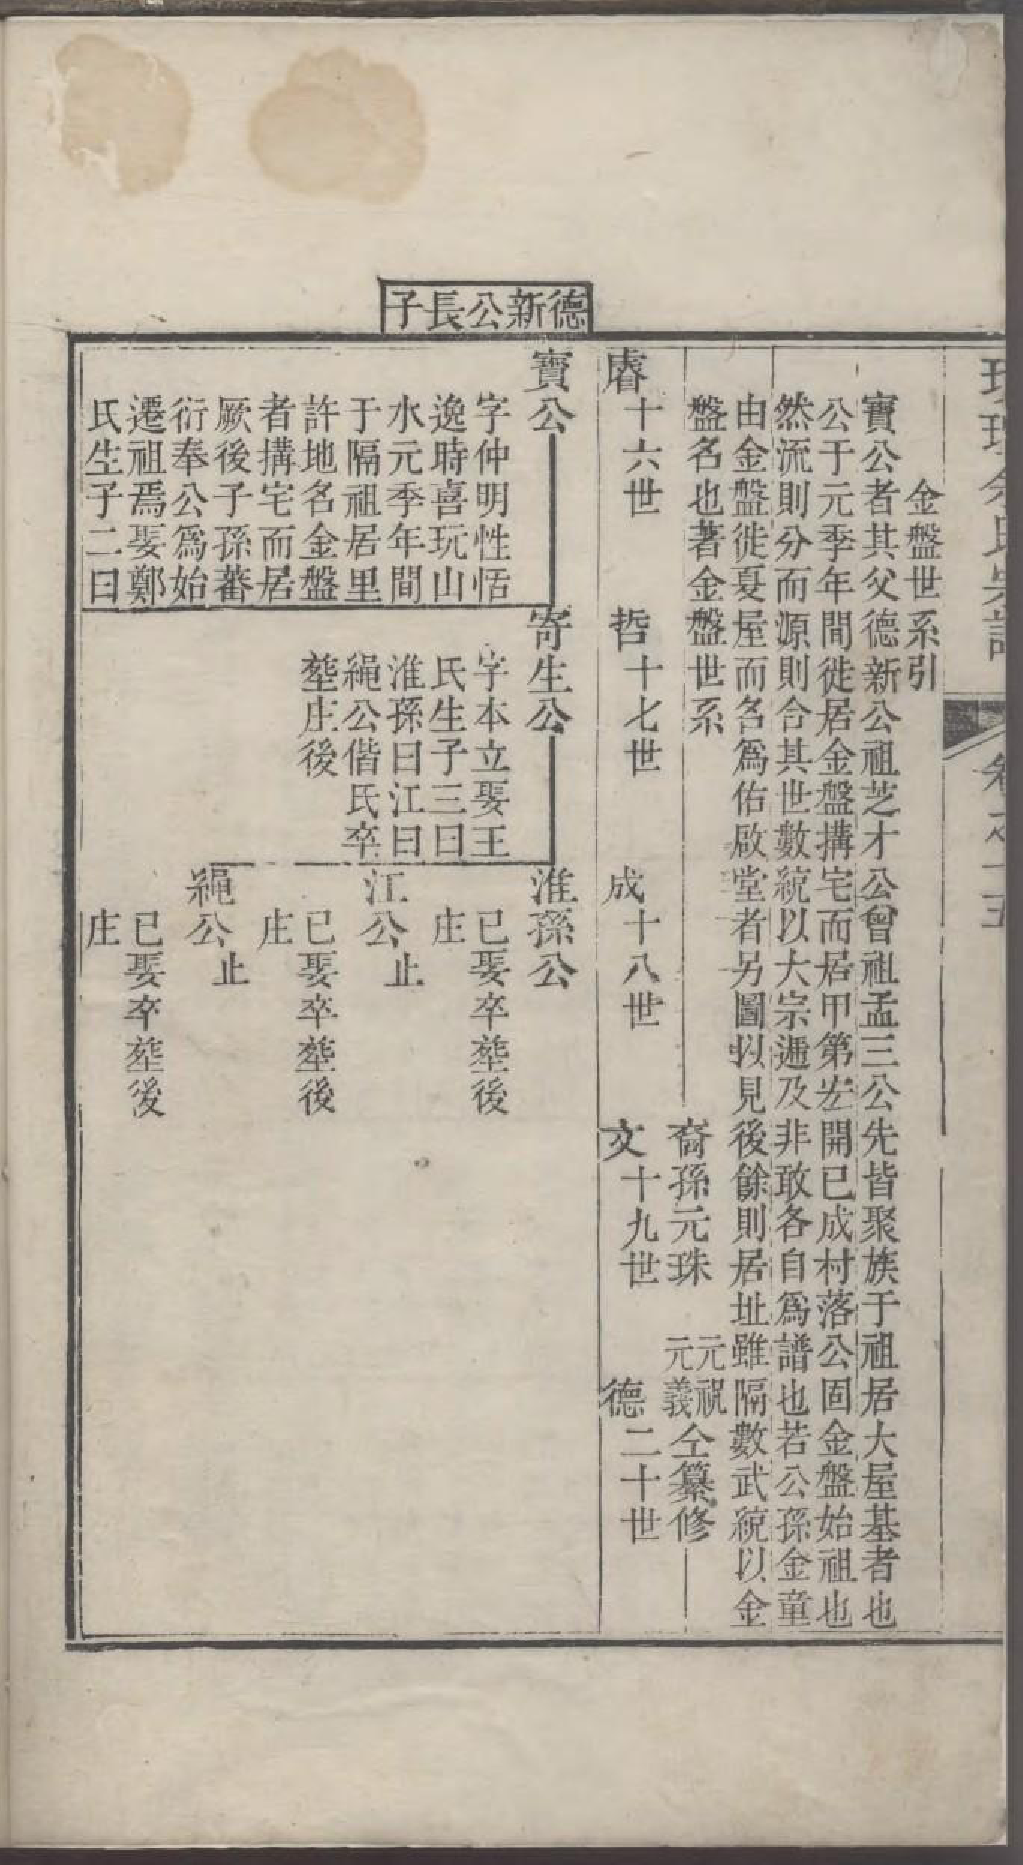 金盤世系引
寶公者其父德新公祖芝才公曾祖孟三公先皆聚族于祖居大屋基者也
公于元季年間徙居金盤搆宅而居甲第宏開已成村落公固金盤始祖也
然流則分而源則合其世數統以大宗遞及非敢各自為譜也若公孫金童
由金盤徙夏屋而名為佑啟堂者另圖以見後餘則居址雖隔數武統以金
盤名也著金盤世系
裔孫元珠 元祝 元義 仝纂修
睿十六世 哲十七世 成十八世 文十九世 德二十世
德新公長子
寶公
字仲明性恬
逸時喜玩山
水元季年間
于隔祖居里
許地名金盤
者搆宅而居
厥後子孫蕃
衍奉公為始
遷祖焉娶鄭
氏生子二曰
寄生公
字本立娶王
氏生子三曰
淮孫曰江曰
繩公偕氏卒
塟庄後
淮孫公
已娶卒塟後
庄
江公止
已娶卒塟後
庄
繩公止
已娶卒塟後
庄